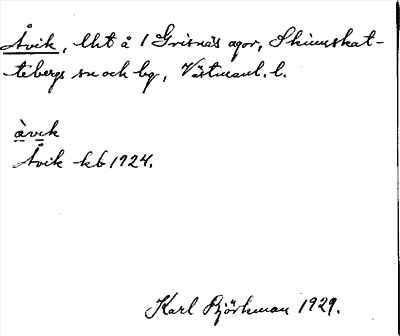 Åvik, lht å 1 Grisnäs agor, Skinnskat-
tebergs sn och bg, Västmanl. l.
àvik
Åvik kb 1924.
Karl Björkman 1929.